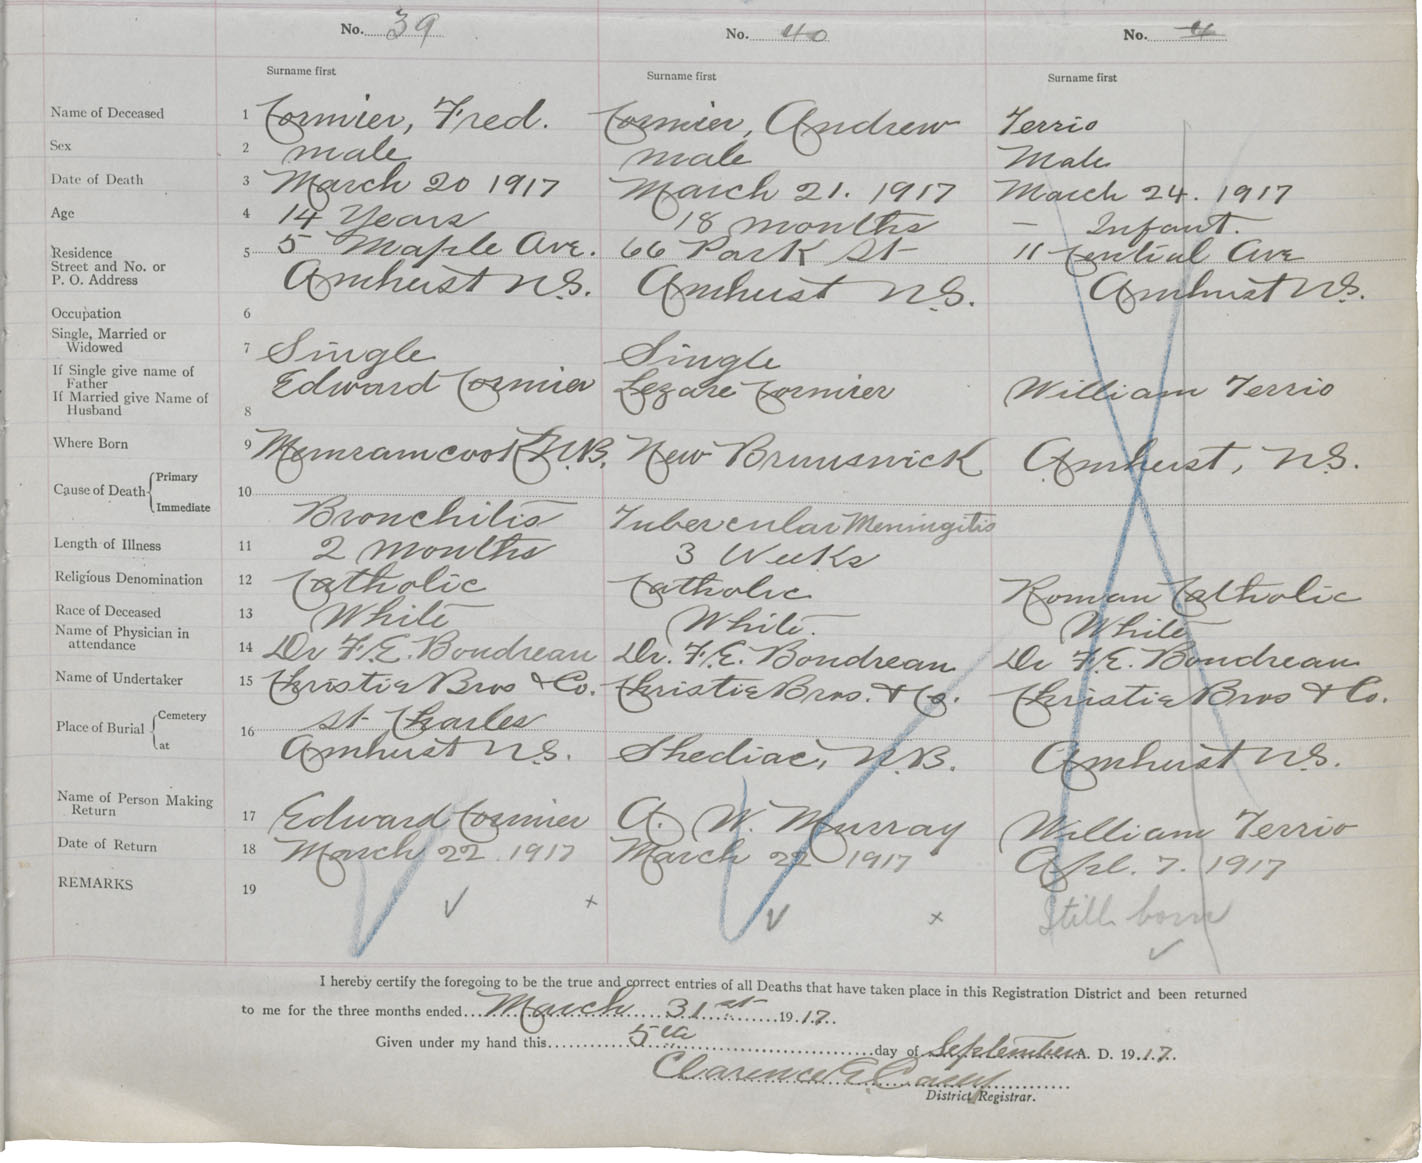 No. 39 No. 40 No. 4
Surname first Surname first Surname first
Name of Deceased 1 Cormier, Fred. Cormier, Andrew Terrio
Sex 2 male male Male
Date of Death 3 March 20 1917 March 21. 1917 March 24. 1917
Age 4 14 Years 18 months — Infant.
Residence 5 5 Maple Ave. 66 Park St 11 Central Ave
Street and No. or
P. O. Address Amherst N.S. Amherst N.S. Amherst N.S.
Occupation 6
Single, Married or
Widowed 7 Single Single
If Single give name of
Father Edward Cormier Lezare Cormier William Terrio
If Married give Name of
Husband 8
Where Born 9 Memramcook N.B. New Brunswick Amherst, N.S.
Cause of Death Primary
10
Immediate Bronchitis Tubercular Meningitis
Length of Illness 11 2 months 3 Weeks
Religious Denomination 12 Catholic Catholic Roman Catholic
Race of Deceased 13 White White. White
Name of Physician in
attendance 14 Dr F.E. Boudreau Dr. F.E. Boudreau Dr F.E. Boudreau
Name of Undertaker 15 Christie Bros & Co. Christie Bros. & Co. Christie Bros & Co.
Place of Burial Cemetery 16 St Charles
at Amherst N.S. Shediac, N.B. Amherst N.S.
Name of Person Making
Return 17 Edward Cormier A. W. Murray William Terrio
Date of Return 18 March 22 1917 March 22 1917 Apl. 7. 1917
REMARKS 19 Still born
I hereby certify the foregoing to be the true and correct entries of all Deaths that have taken place in this Registration District and been returned
to me for the three months ended March 31st 1917.
Given under my hand this 5th day of September A. D. 1917.
Clarence E. Casey
District Registrar.